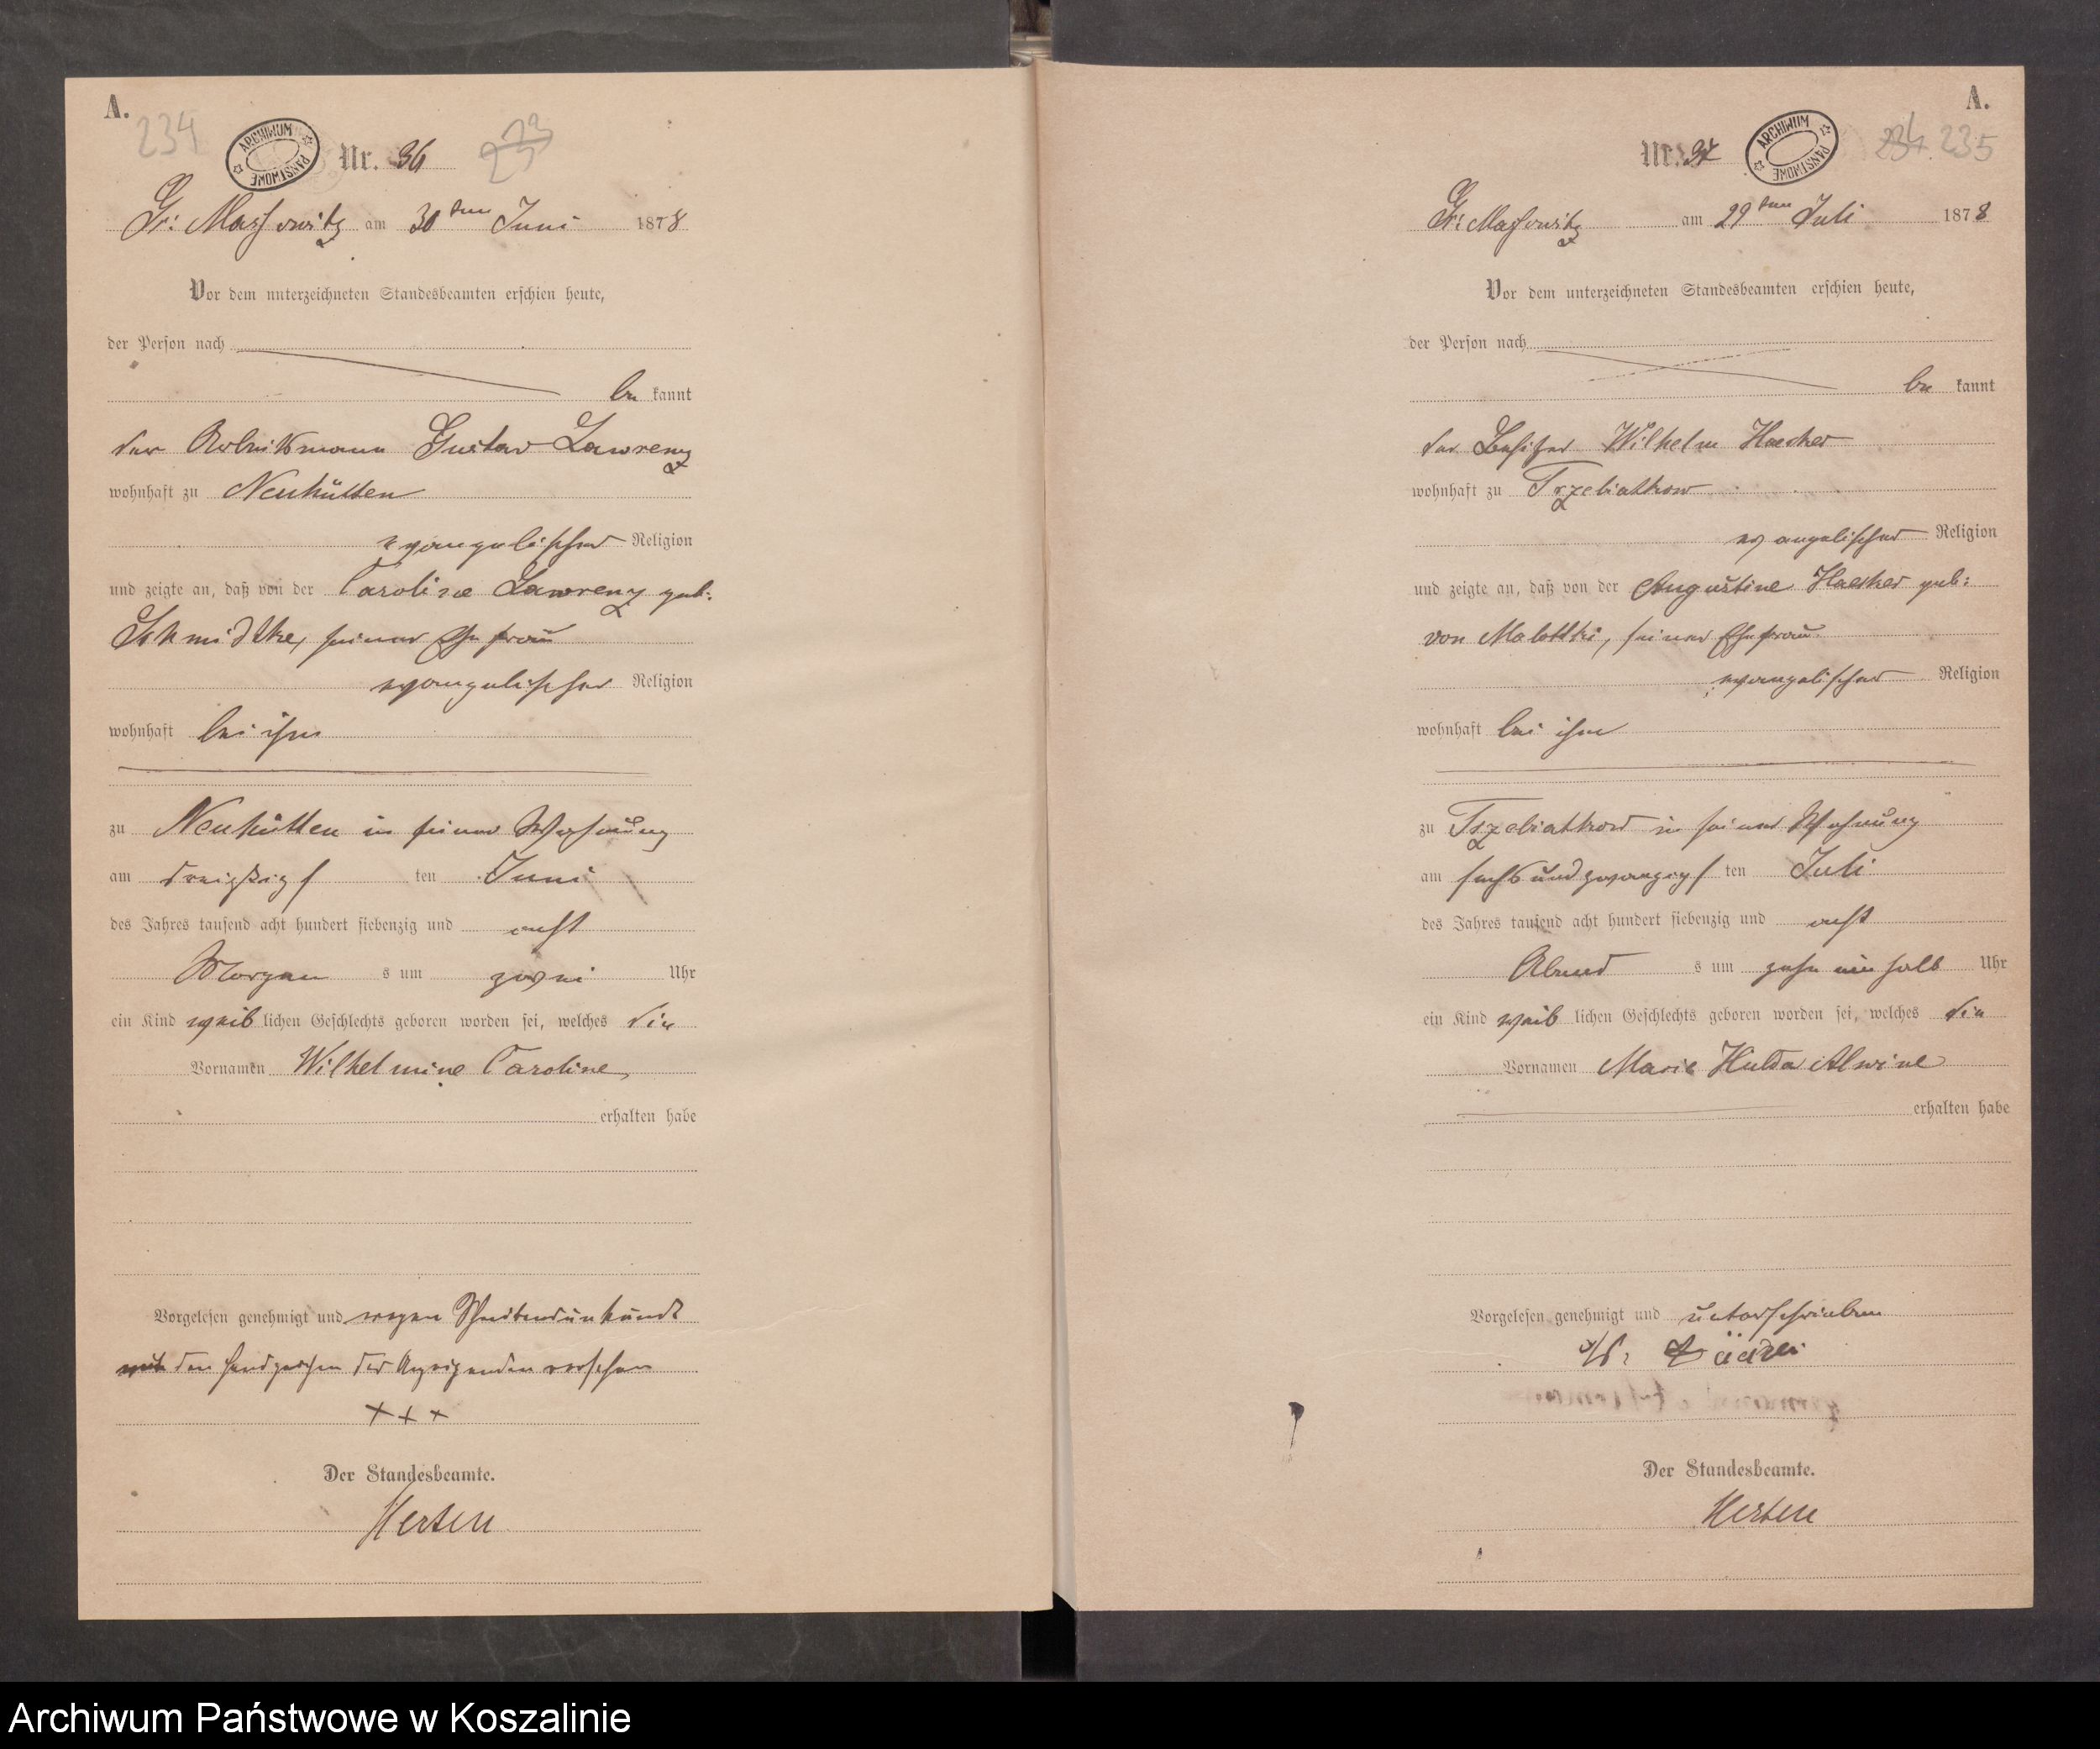 A.
234
ARCHIWUM PAŃSTWOWE
Nr. 36
Gr: Massowitz am 30ten Juni 1878
Vor dem unterzeichneten Standesbeamten erschien heute,
der Person nach
be kannt
der Arbeitsmann Gustav Lawrenz
wohnhaft zu Neuhütten
evangelischer Religion
und zeigte an, daß von der Caroline Lawrenz geb:
Schmidtke, seiner Ehefrau
evangelischer Religion
wohnhaft bei ihm
zu Neuhütten in seiner Wohnung
am dreißigs ten Juni
des Jahres tausend acht hundert siebenzig und acht
Morgen s um zwei Uhr
ein Kind weib lichen Geschlechts geboren worden sei, welches die
Vornamen Wilhelmine Caroline
erhalten habe
Vorgelesen genehmigt und wegen Schreibensunkunde
mit den Handzeichen des Anzeigenden versehen
+++
Der Standesbeamte.
Herten
A.
ARCHIWUM PAŃSTWOWE
234 235
Nr. 37
Gr: Massowitz am 29ten Juli 1878
Vor dem unterzeichneten Standesbeamten erschien heute,
der Person nach
be kannt
der Besitzer Wilhelm Haecker
wohnhaft zu Trzebiatkow
evangelischer Religion
und zeigte an, daß von der Augustine Haecker geb:
von Malottki, seiner Ehefrau
evangelischer Religion
wohnhaft bei ihm
zu Trzebiatkow in seiner Wohnung
am sechsundzwanzigs ten Juli
des Jahres tausend acht hundert siebenzig und acht
Abend s um zehn ein halb Uhr
ein Kind weib lichen Geschlechts geboren worden sei, welches die
Vornamen Marie Hulda Alwine
erhalten habe
Vorgelesen genehmigt und unterschrieben
Der Standesbeamte.
Herten
Archiwum Państwowe w Koszalinie